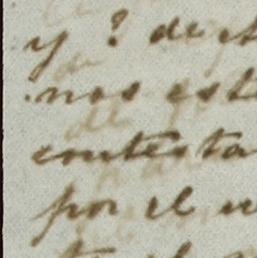 y ? de
nos est
contesta
por el